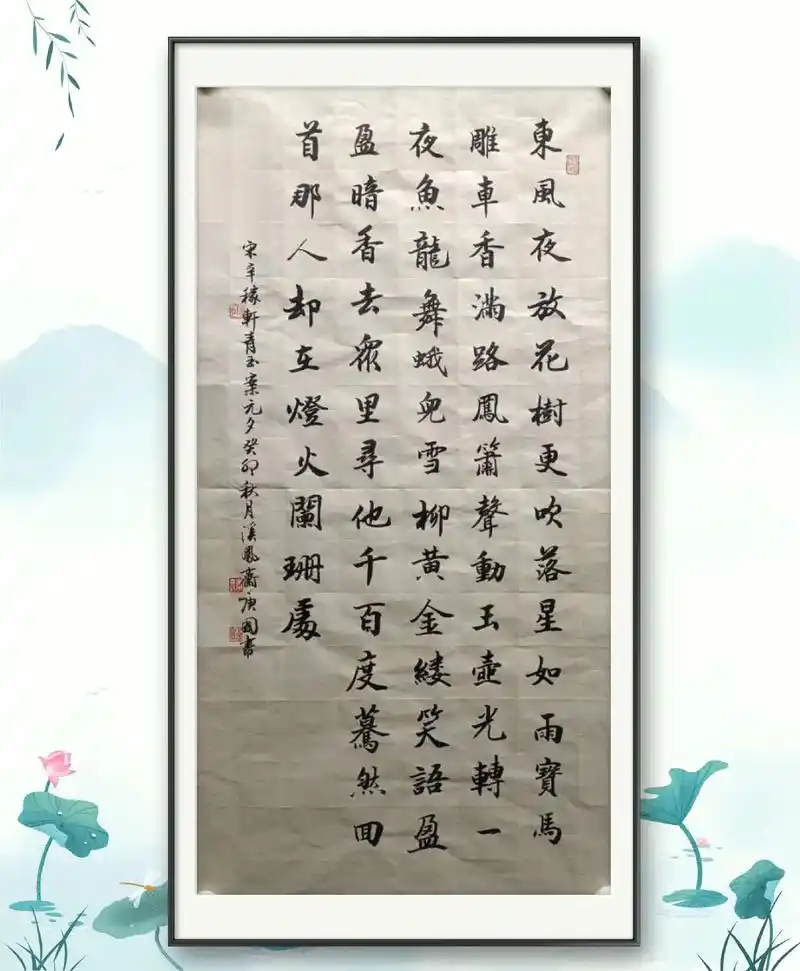 東風夜放花樹更吹落星如雨寶馬
雕車香滿路鳳簫聲動玉壺光轉一
夜魚龍舞蛾兒雪柳黃金縷笑語盈
盈暗香去眾里尋他千百度驀然回
首那人却在燈火闌珊處
宋辛稼軒青玉案元夕癸卯秋月溪風齋國書